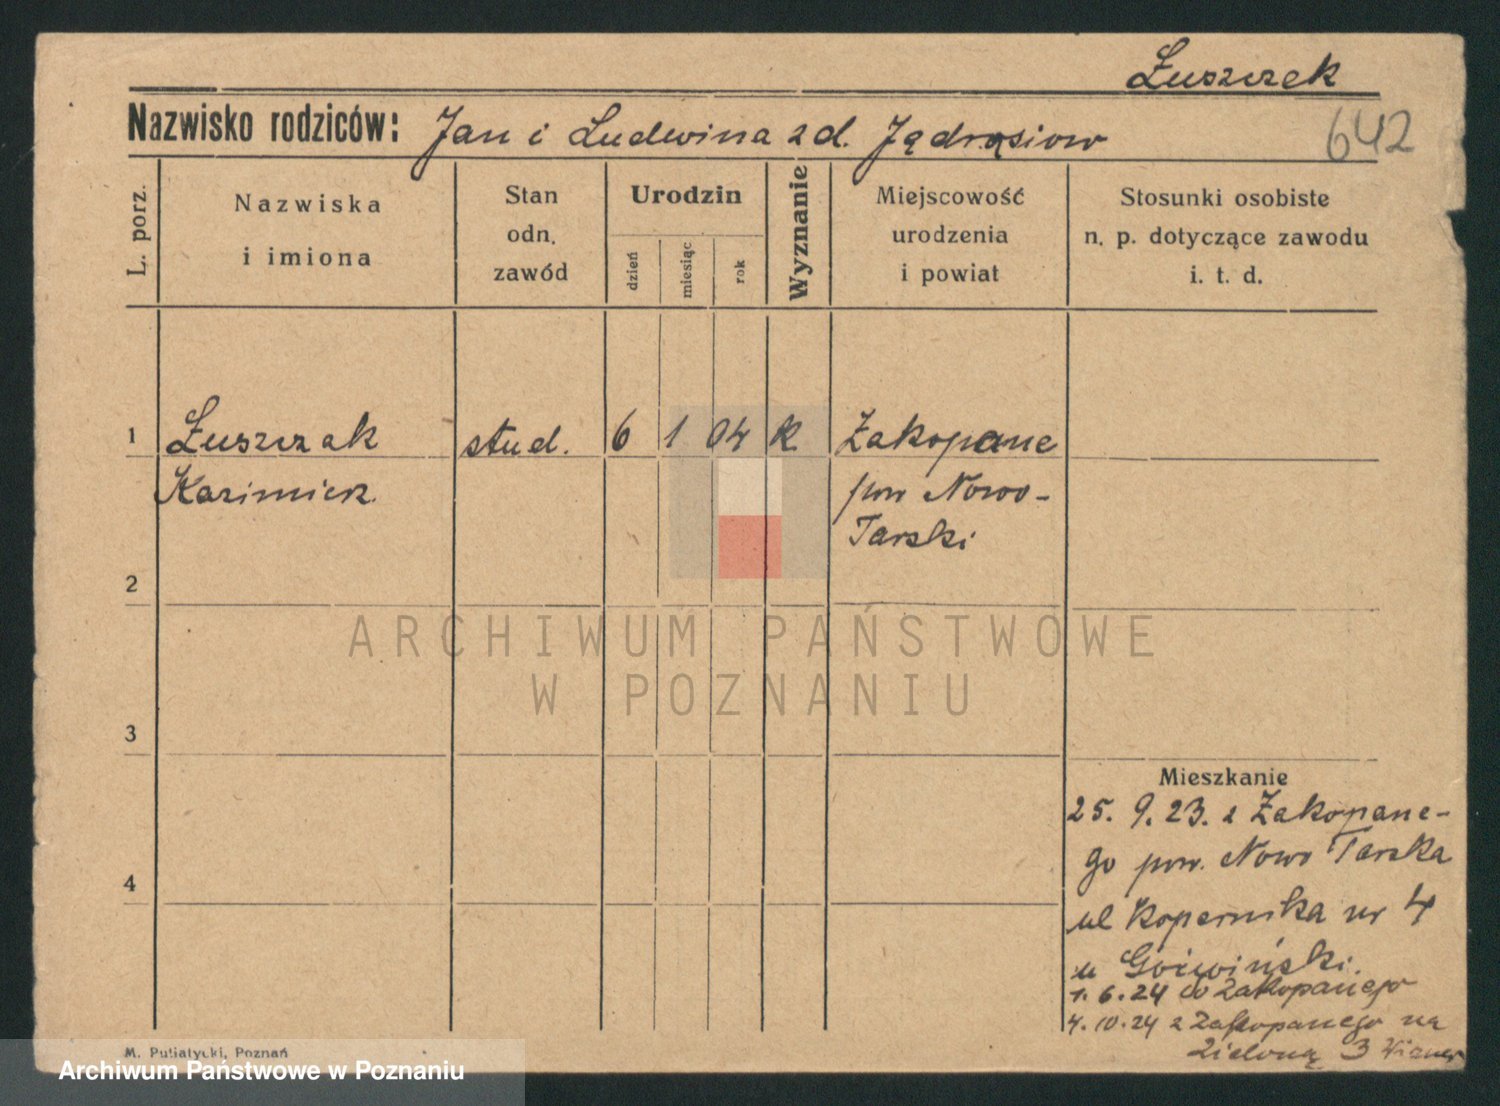 Łuszczek
Nazwisko rodziców: Jan i Ludwina z d. Jędrąsiow
642
L. porz.
Nazwiska
i imiona
Stan
odn.
zawód
Urodzin
dzień
miesiąc
rok
Wyznanie
Miejscowość
urodzenia
i powiat
Stosunki osobiste
n. p. dotyczące zawodu
i. t. d.
1 Łuszczak stud. 6 1 04 k Zakopane
Kazimierz pow Nowo-
Tarski
2
ARCHIWUM PAŃSTWOWE
W POZNANIU
3
Mieszkanie
25. 9. 23. z Zakopane-
go pow. Nowo Tarska
4
ul Kopernika nr 4
u
1. 6. 24 do Zakopanego
4. 10. 24 z Zakopanego na
Zieloną 3
M. Putiatycki, Poznań
Archiwum Państwowe w Poznaniu